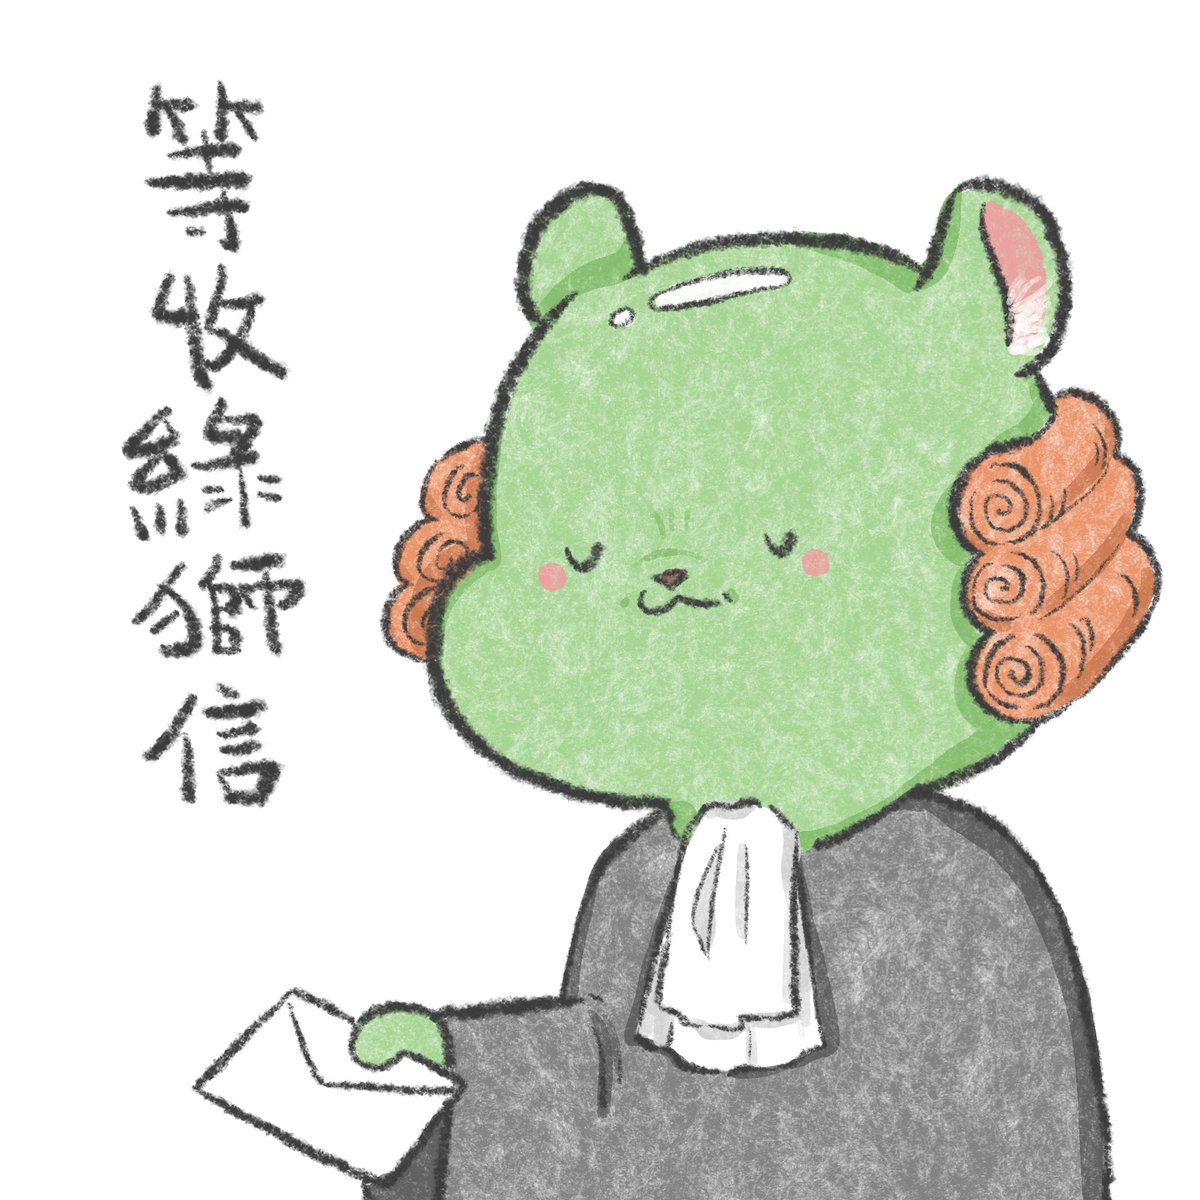 等收綠獅信